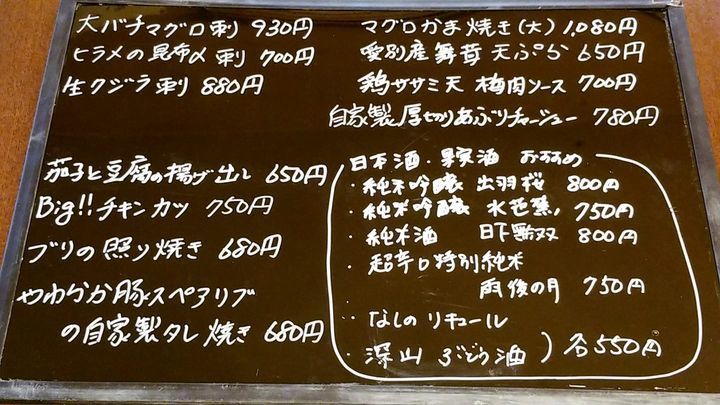 大バチマグロ刺 930円
ヒラメの昆布〆刺 700円
生クジラ刺 880円
茄子と豆腐の揚げ出し 650円
Big!! チキンカツ 750円
ブリの照り焼き 680円
やわらか豚スペアリブ
の自家製タレ焼き 680円
マグロかま焼き(大) 1,080円
愛別産舞茸 天ぷら 650円
鶏ササミ天 梅肉ソース 700円
自家製厚切りあぶりチャーシュー 780円
日本酒・果実酒 おすすめ
・純米吟醸 出羽桜 800円
・純米吟醸 水芭蕉 750円
・純米酒 日下無双 800円
・超辛口特別純米
雨後の月 750円
・なしのリキュール
・深山ぶどう酒 ) 各550円